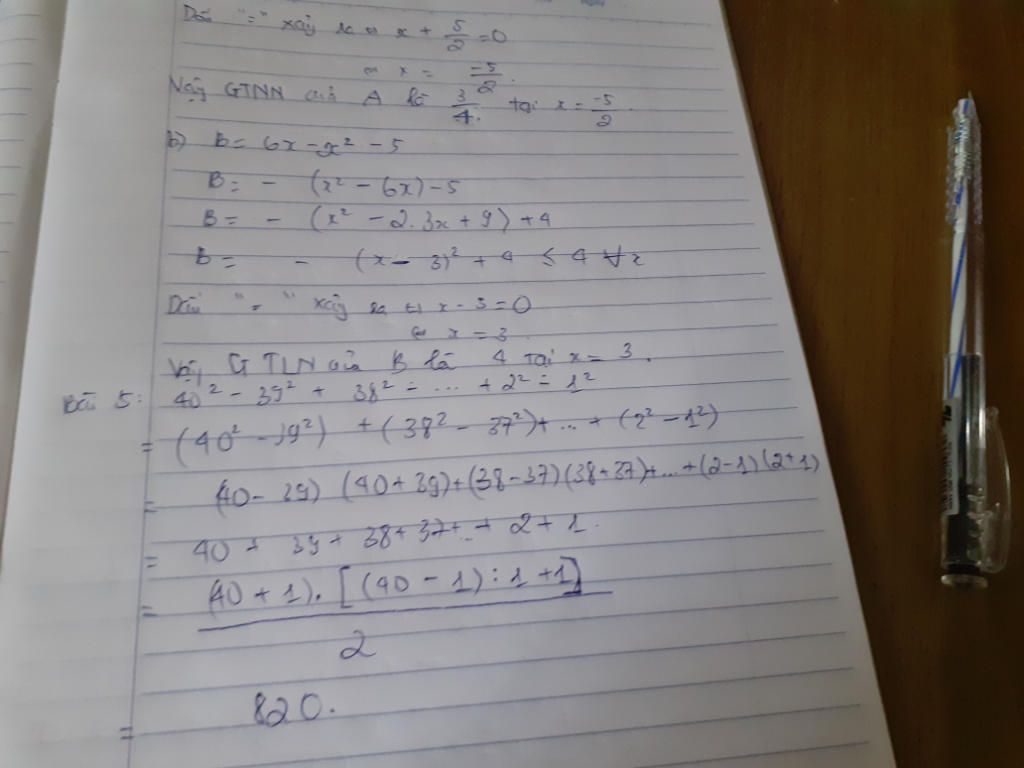 Dấu "=" xảy ra ⇔ x + 5/2 = 0
⇔ x = -5/2.
Vậy GTNN của A là 3/4. tại x = -5/2.
b) B = 6x - x² - 5
B = - (x² - 6x) - 5
B = - (x² - 2.3x + 9) + 4
B = - (x - 3)² + 4 ≤ 4 ∀x
Dấu "=" xảy ra ⇔ x - 3 = 0
⇔ x = 3.
Vậy GTLN của B là 4 tại x = 3.
Bài 5: 40² - 39² + 38² - ... + 2² - 1²
= (40² - 39²) + (38² - 37²) + ... + (2² - 1²)
= (40 - 39) (40 + 39) + (38 - 37) (38 + 37) + ... + (2 - 1) (2 + 1)
= 40 + 39 + 38 + 37 + ... + 2 + 1.
= (40 + 1). [(40 - 1) : 1 + 1]
2
= 820.